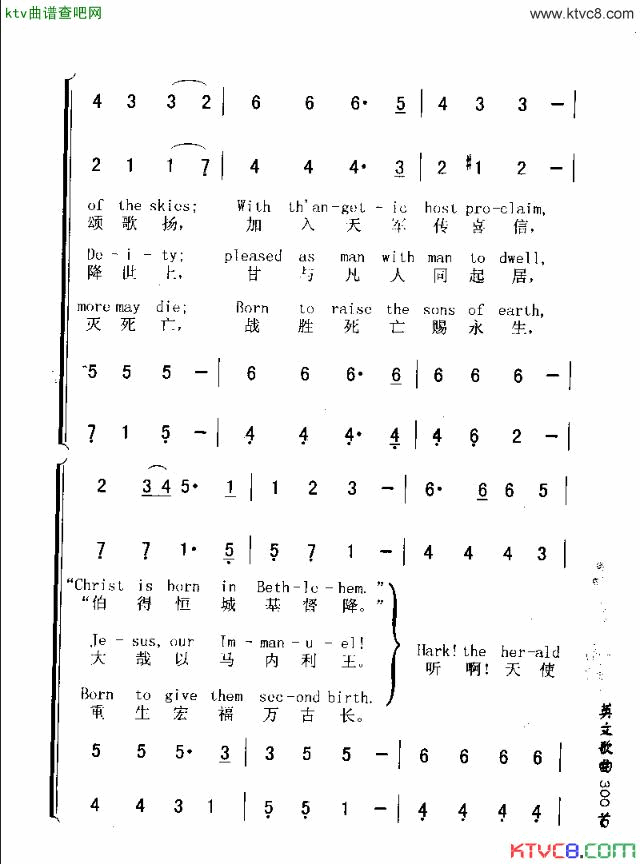 ktv曲谱查吧网
www.ktvc8.com
4 3 3 2 | 6 6 6· 5 | 4 3 3 – |
2 1 1 7 | 4 4 4· 3 | 2 #1 2 – |
of the skies; With th'an-get-ic host pro-claim,
颂歌扬, 加入天军传喜信,
De-i-ty; pleased as man with man to dwell,
降世上, 甘与凡人同起居,
more may die; Born to raise the sons of earth,
灭死亡, 战胜死亡赐永生,
5 5 5 – | 6 6 6· 6 | 6 6 6 – |
7 1 5 – | 4 4 4· 4 | 4 6 2 – |
2 3 4 5· 1 | 1 2 3 – | 6· 6 6 5 |
7 7 1· 5 | 5 7 1 – | 4 4 4 3 |
“Christ is born in Beth-le-hem.”
“伯得恒城基督降。”
Je-sus, our Im-man-u-el!
大哉以马内利王。
Hark! the her-ald
听啊! 天使
Born to give them sec-ond birth.
重生宏福万古长。
5 5 5· 3 | 3 5 5 – | 6 6 6 6 |
4 4 3 1 | 5 5 1 – | 4 4 4 4 |
英文歌曲300首
KTVC8.COM